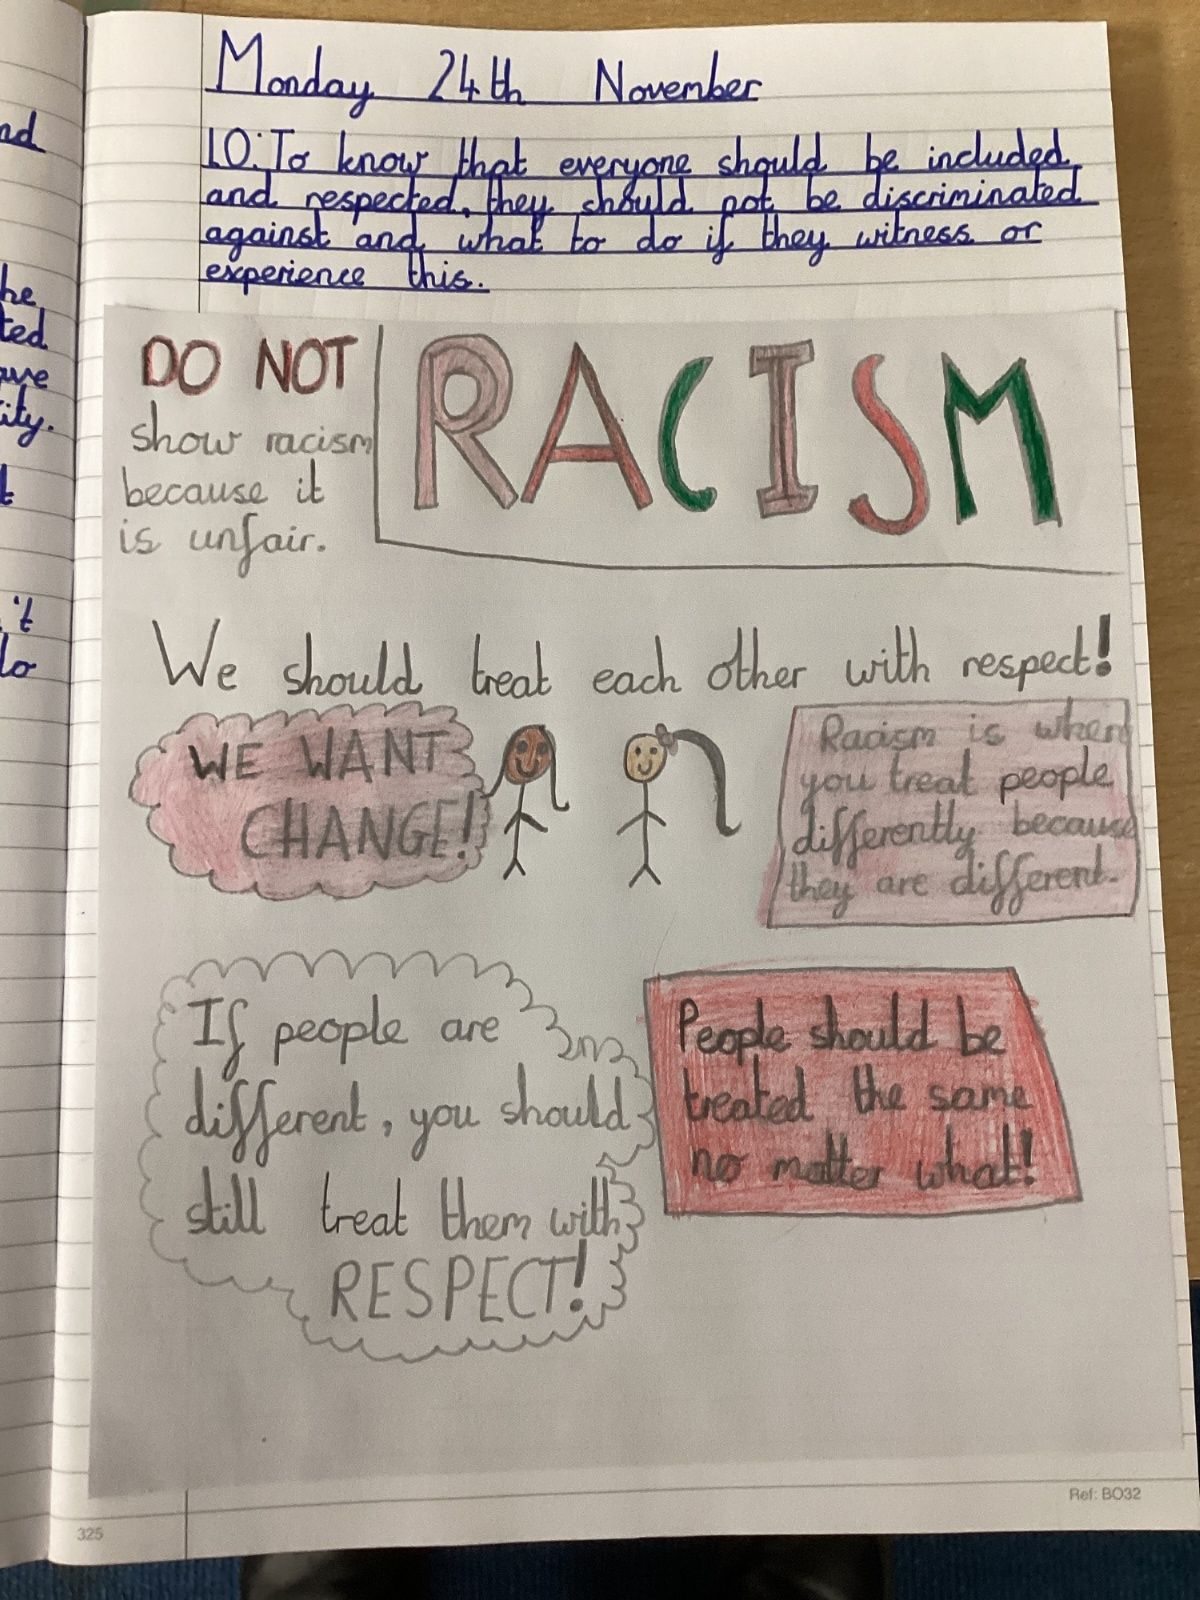 Monday 24th November
LO: To know that everyone should be included
and respected, they should not be discriminated
against and what to do if they witness or
experience this.
DO NOT
show racism
because it
is unfair.
RACISM
We should treat each other with respect!
WE WANT
CHANGE!
Racism is when
you treat people
differently because
they are different.
If people are
different, you should
still treat them with
RESPECT!
People should be
treated the same
no matter what!
Ref: BO32
325